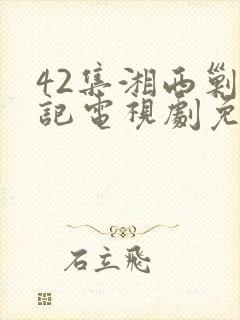 42集湘西剿
記電視劇免
石立飛